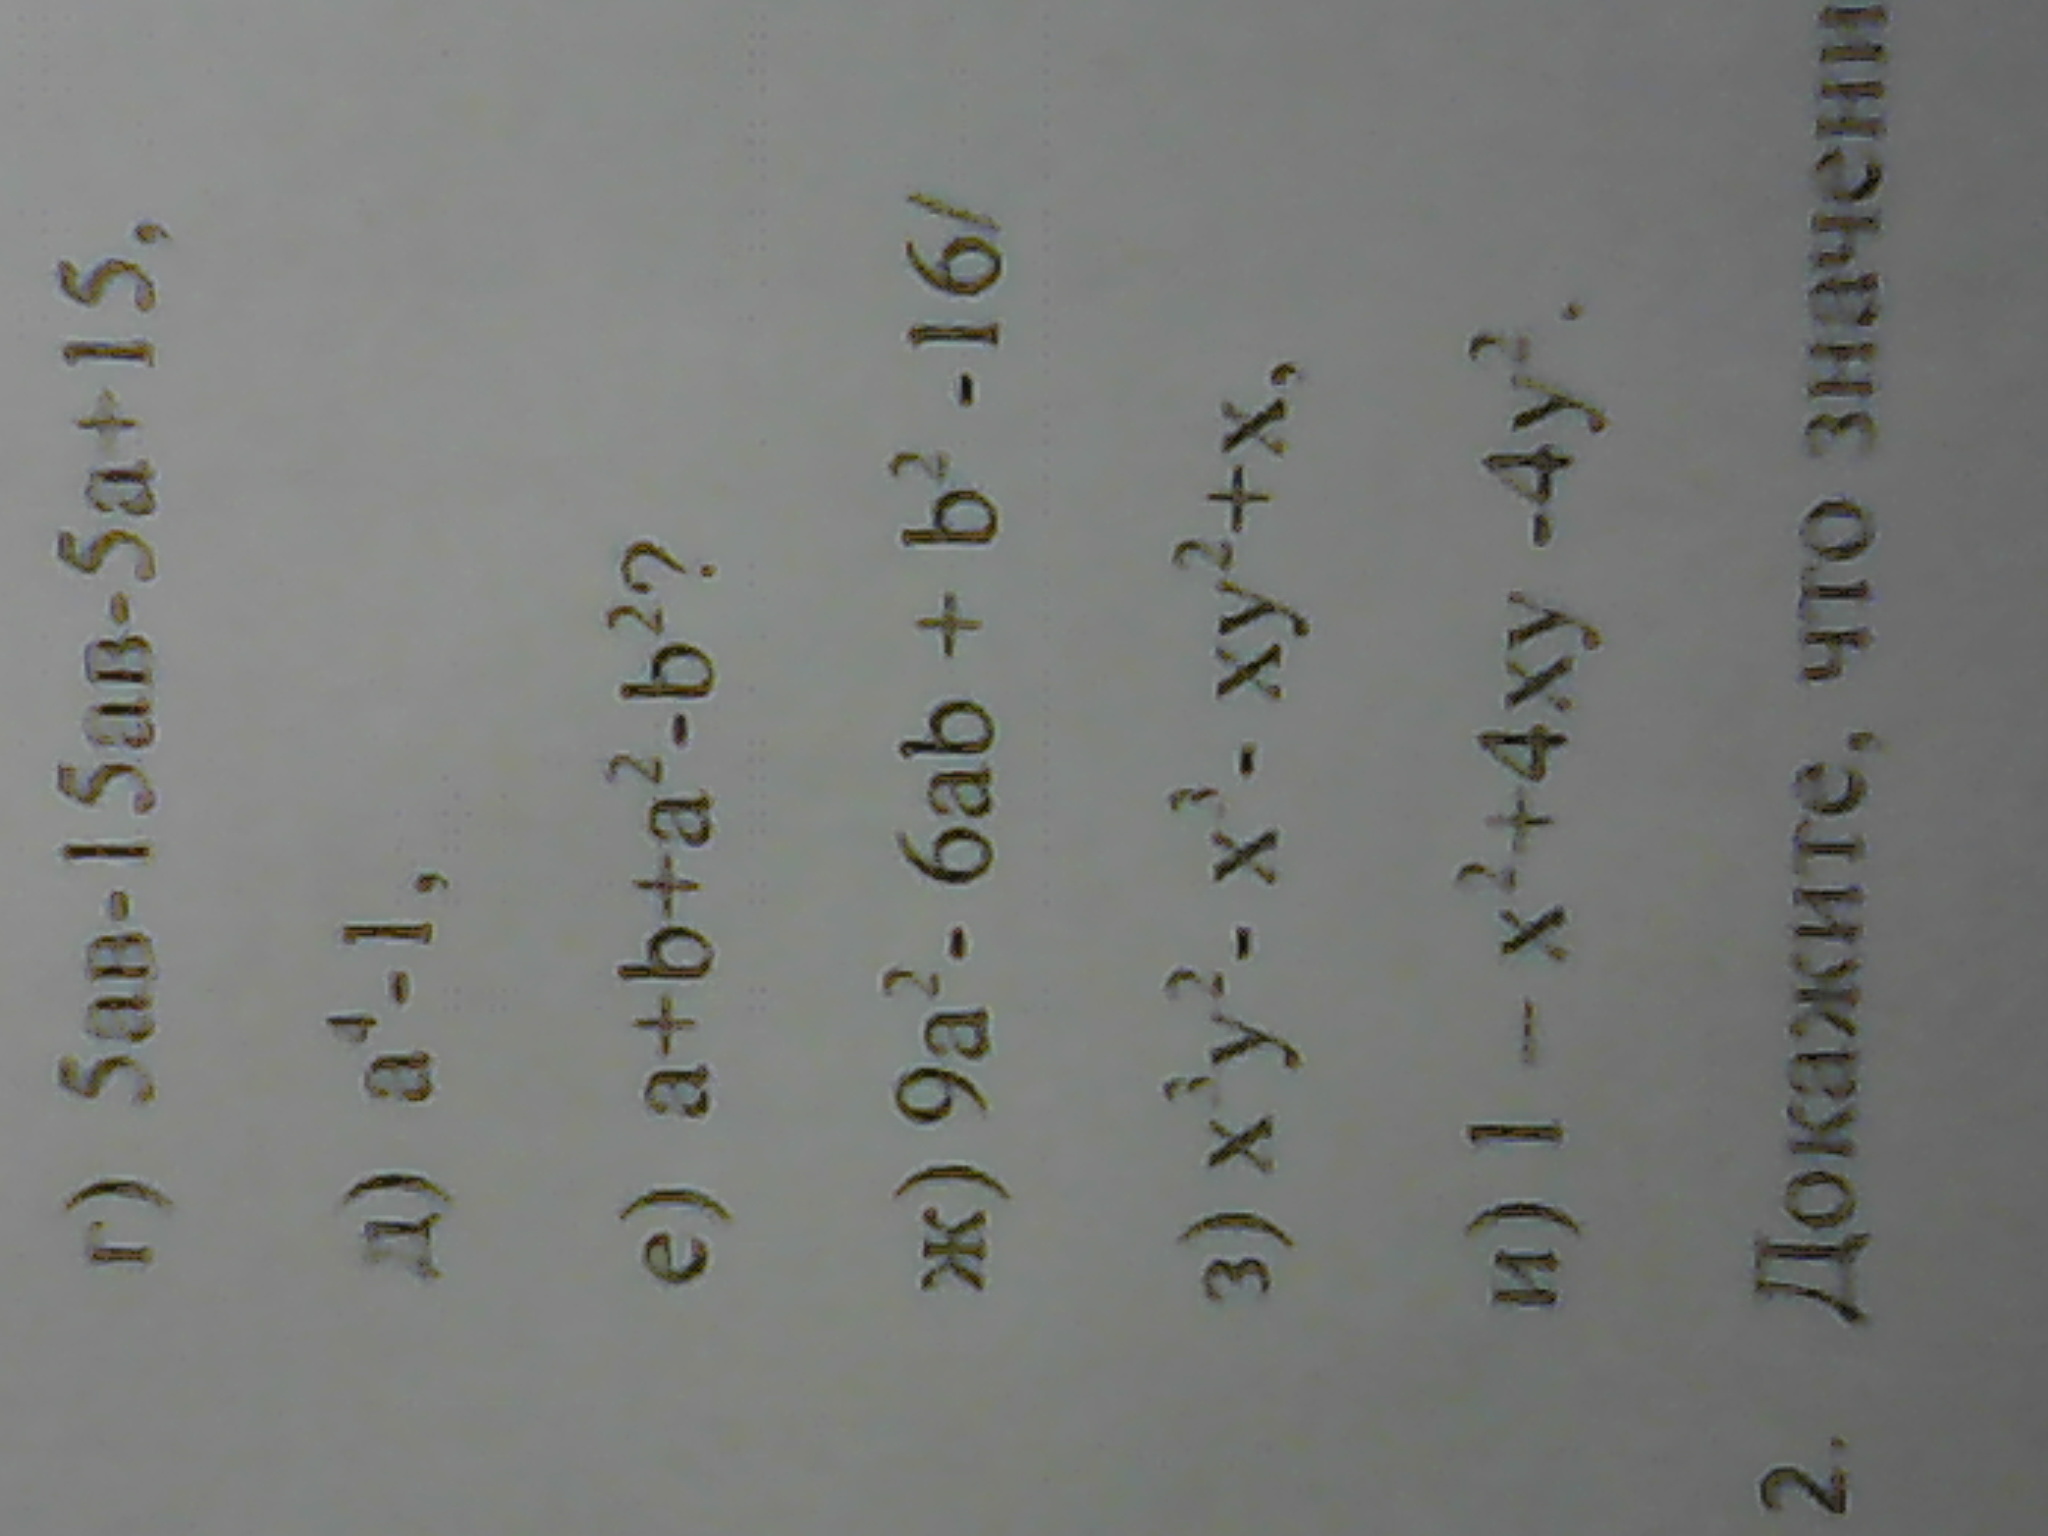 г) 5ав-15ав-5а+15,
д) a⁴-1,
е) a+b+a²-b²?
ж) 9a²- 6ab + b² -16/
з) x³y²- x³- xy²+x,
и) 1 – x²+4xy -4y².
2. Докажите, что значени